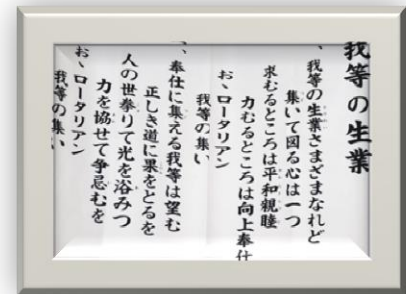 我等の生業
、我等の生業さまざまなれど
集いて図る心は一つ
求むるところは平和親睦
力むるところは向上奉仕
お、ロータリアン
我等の集い
、奉仕に集える我等は望む
正しき道に果をとるを
人の世挙りて光を浴みつ
力を協せて争忌むを
お、ロータリアン
我等の集い